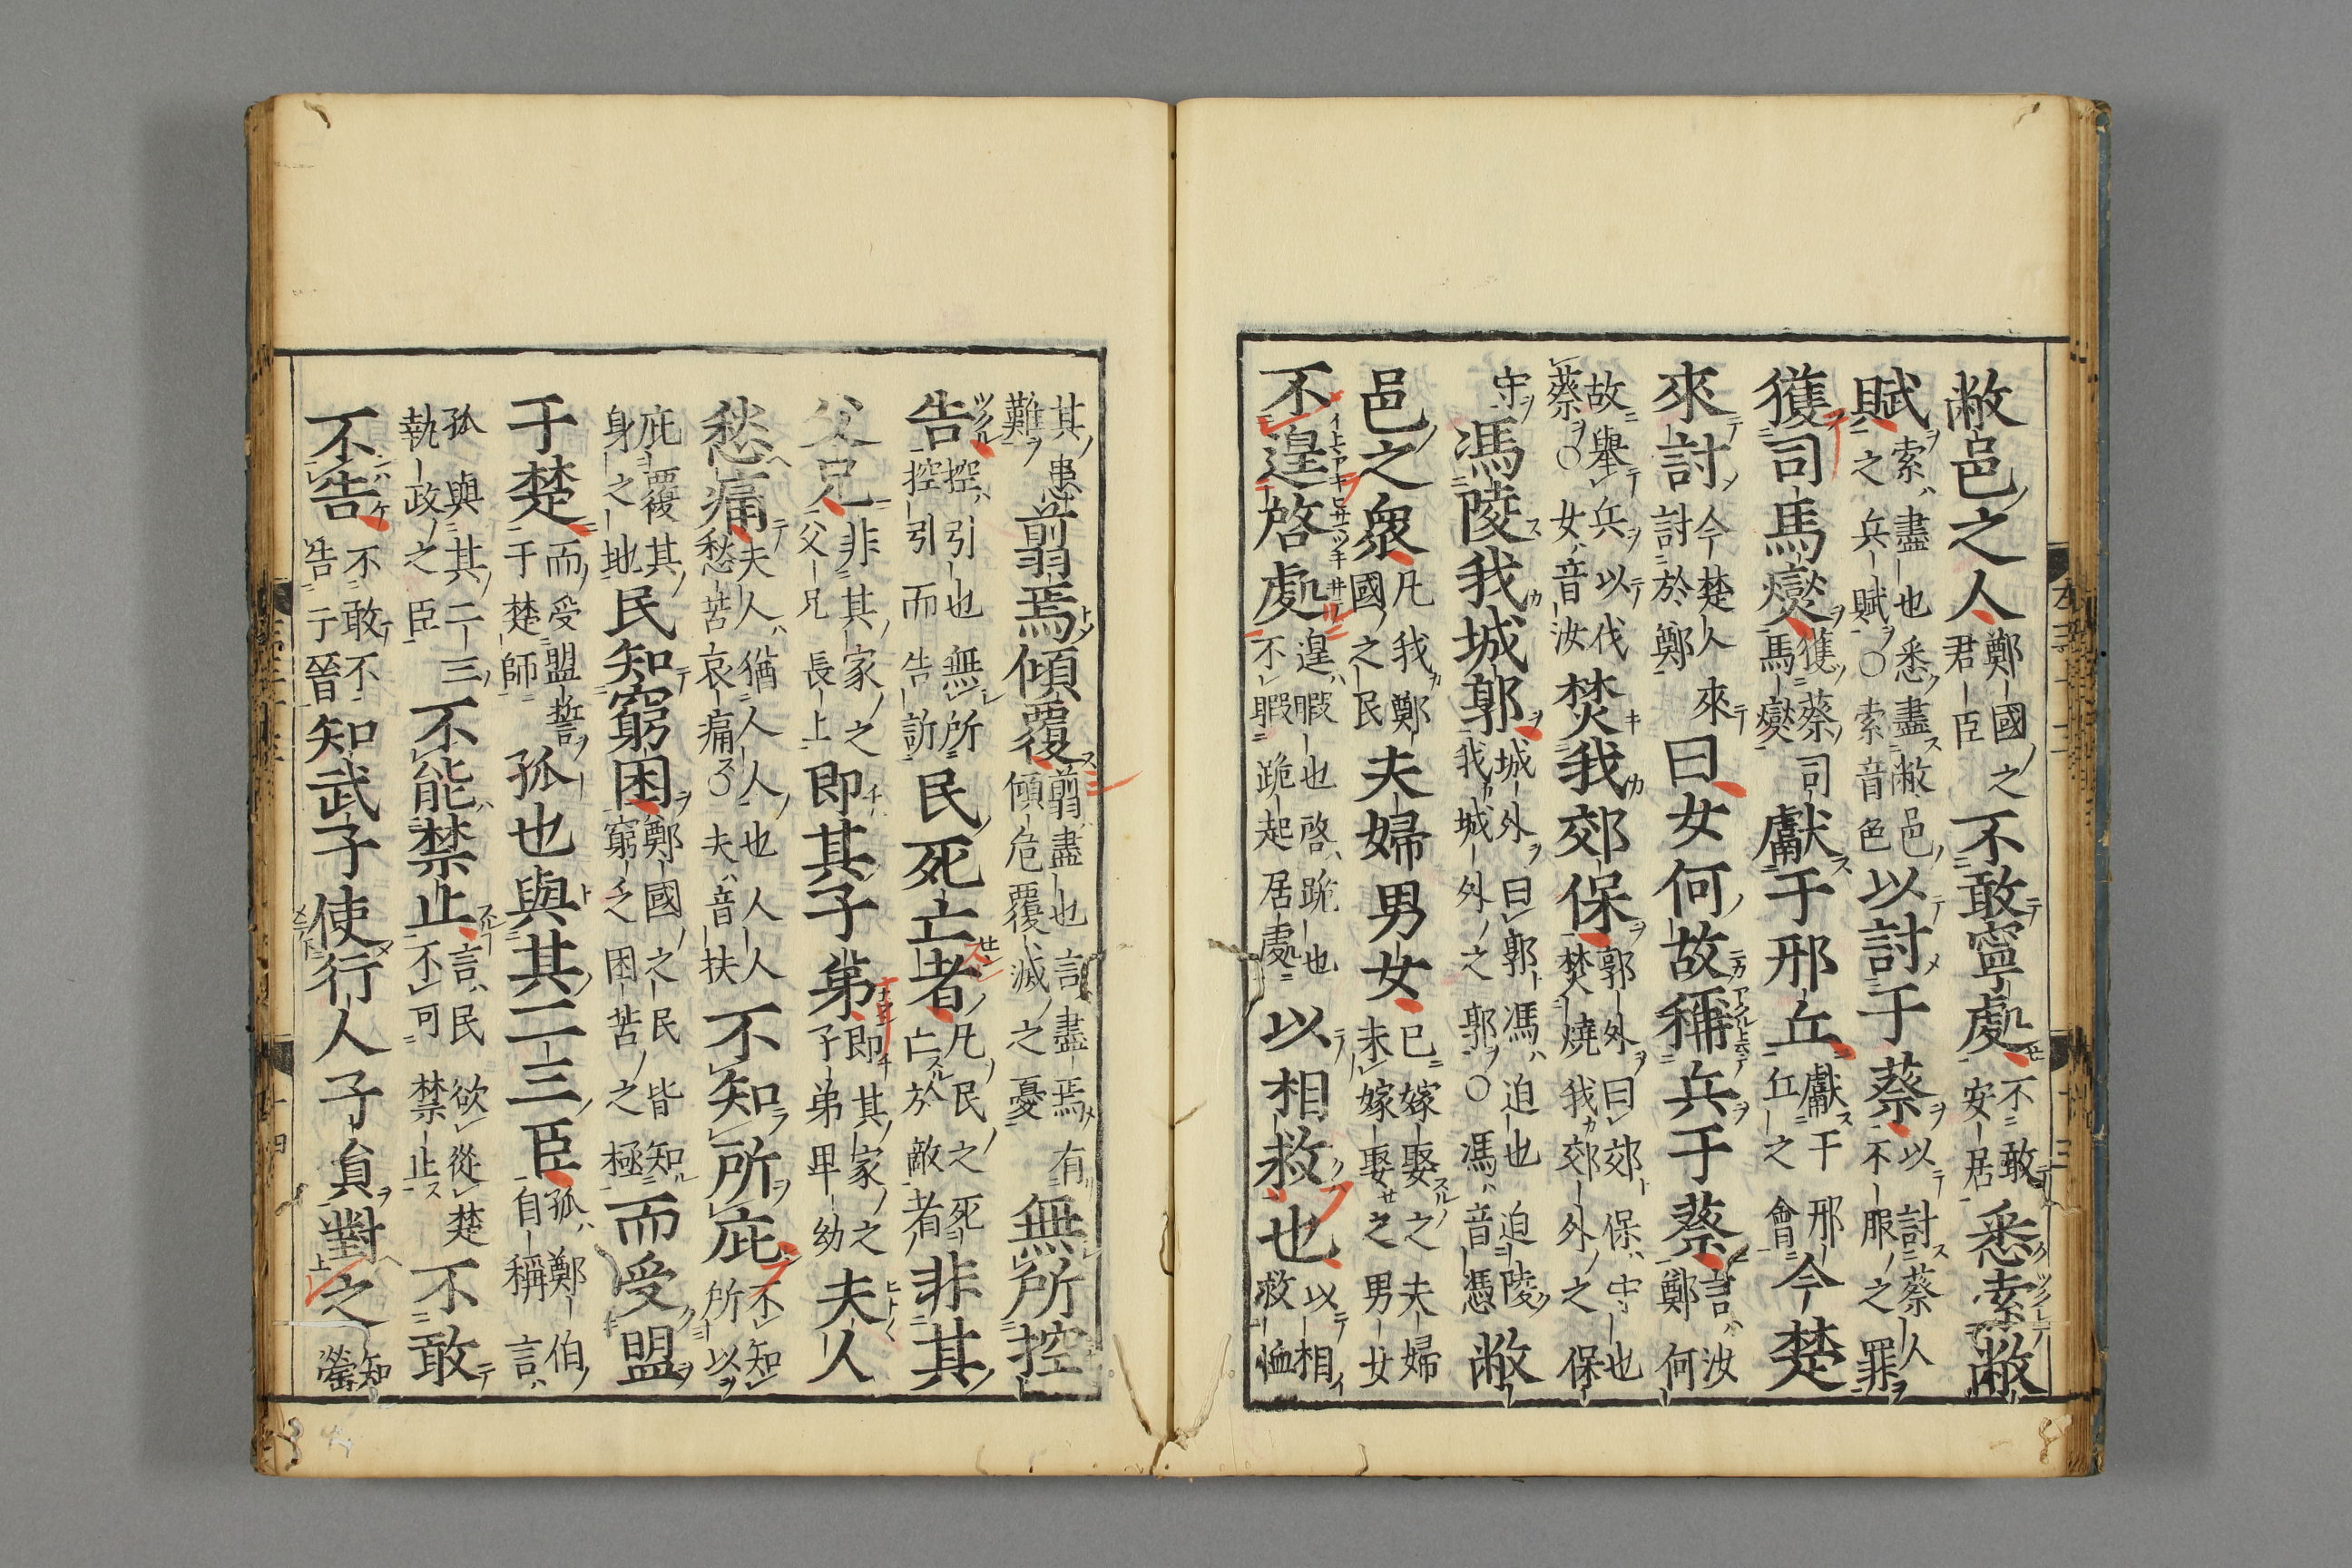 敝邑之人鄭國之君臣不敢寧處不敢安居悉索敝
賦索盡也悉盡敝邑之兵賦○索音色以討于蔡以討蔡人不服之罪
獲司馬燮獲蔡司馬燮獻于邢丘獻于邢丘之會今楚
來討今楚人來討於鄭曰女何故稱兵于蔡言汝何
故舉兵以伐蔡○女音汝焚我郊保郭外曰郊保守也焚燒我郊外之保
守馮陵我城郭城外曰郭馮迫也迫陵我城外之郭○馮音憑敝
邑之衆凡我鄭國之民夫婦男女已嫁娶之夫婦未嫁娶之男女
不遑啓處遑暇也啓跪也不暇跪起居處以相救也以相救恤
其患難翦焉傾覆翦盡也言盡焉有傾危覆滅之憂無所控
告控引也無所控引而告訴民死亡者凡民之死亡於敵者非其
父兄非其家之父兄長上即其子弟即其家之子弟卑幼夫人
愁痛夫人猶人人也人人愁苦哀痛○夫音扶不知所庇不知所以
庇覆其身之地民知窮困鄭國之民皆知窮乏困苦之極而受盟
于楚而受盟誓于楚師孤也與其二三臣孤鄭伯自稱言
孤與其二三執政之臣不能禁止言民欲從楚不可禁止不敢
不告不敢不告于晉知武子使行人子員對之知罃